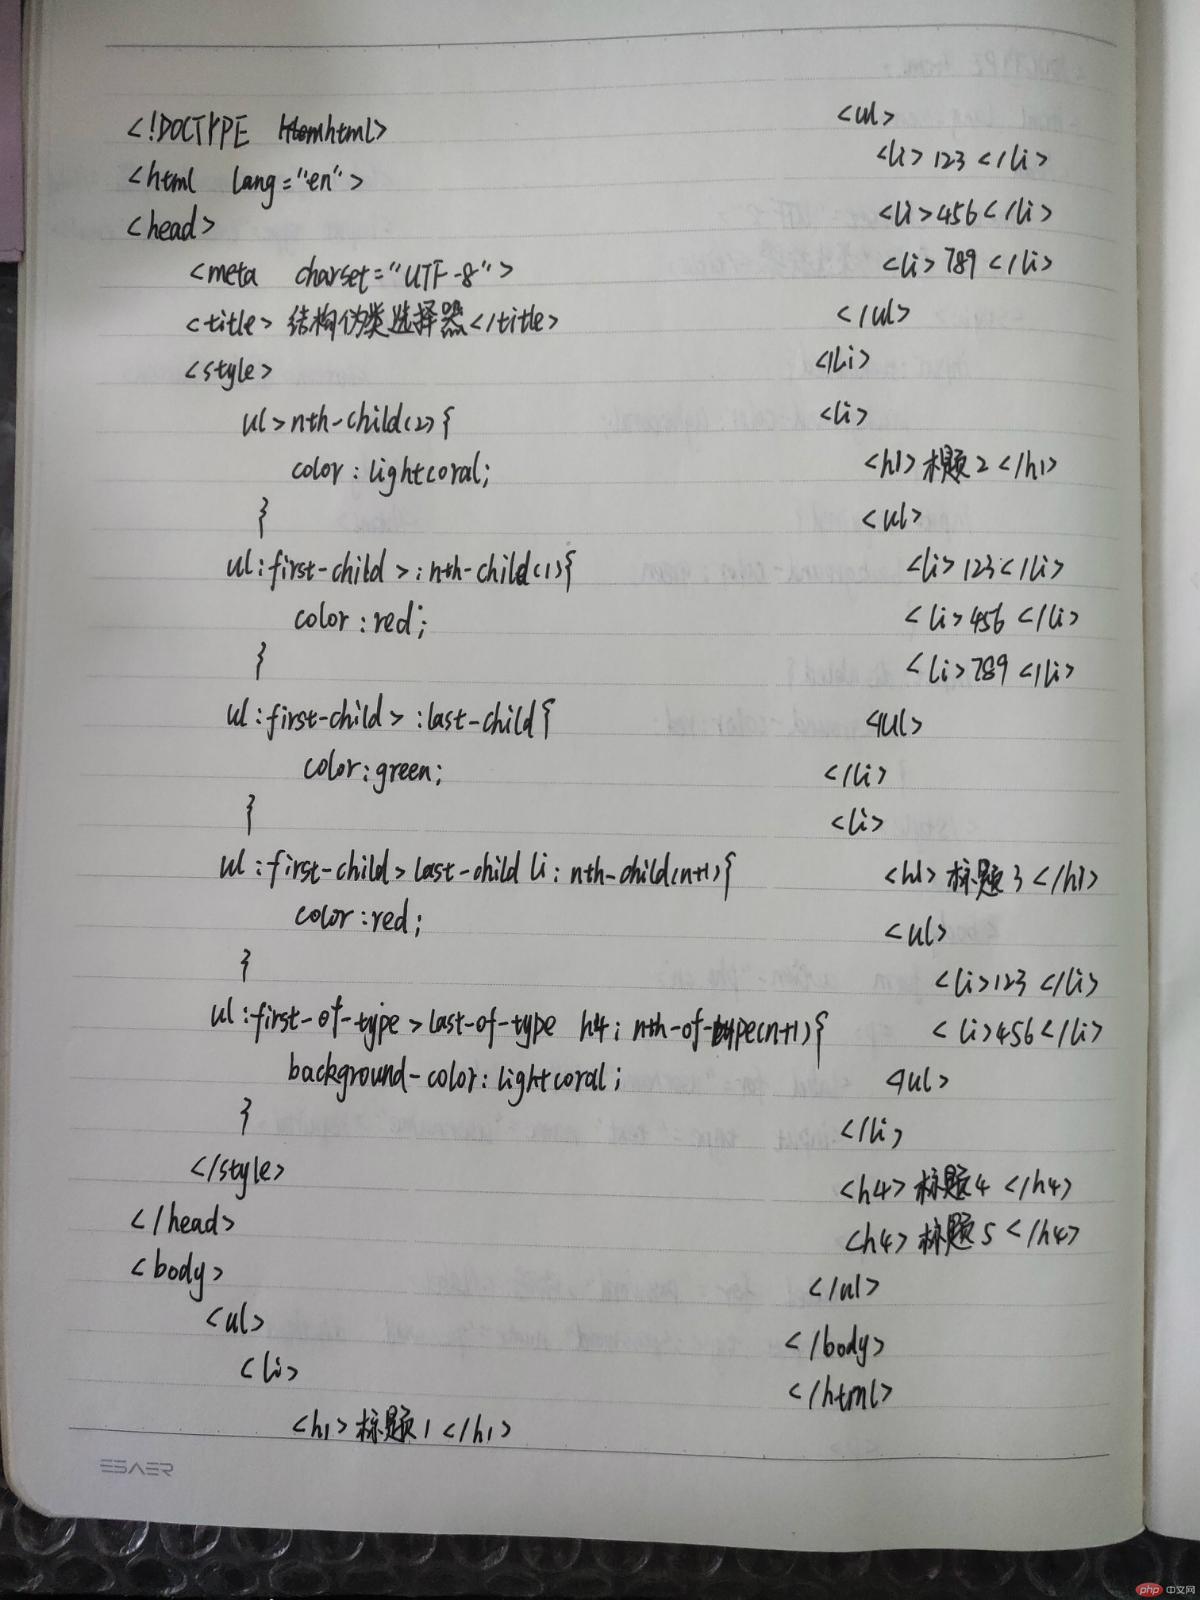 <!DOCTYPE html>
<html lang="en">
<head>
<meta charset="UTF-8">
<title>结构伪类选择器</title>
<style>
ul>nth-child(2){
color:lightcoral;
}
ul:first-child>:nth-child(1){
color:red;
}
ul:first-child>:last-child{
color:green;
}
ul:first-child>last-child li:nth-child(n+1){
color:red;
}
ul:first-of-type>last-of-type h4:nth-of-type(n+1){
background-color:lightcoral;
}
</style>
</head>
<body>
<ul>
<li>
<h1>标题1</h1>
<ul>
<li>123</li>
<li>456</li>
<li>789</li>
</ul>
</li>
<li>
<h1>标题2</h1>
<ul>
<li>123</li>
<li>456</li>
<li>789</li>
</ul>
</li>
<li>
<h1>标题3</h1>
<ul>
<li>123</li>
<li>456</li>
</ul>
</li>
<h4>标题4</h4>
<h4>标题5</h4>
</ul>
</body>
</html>
ESAER
php 中文网